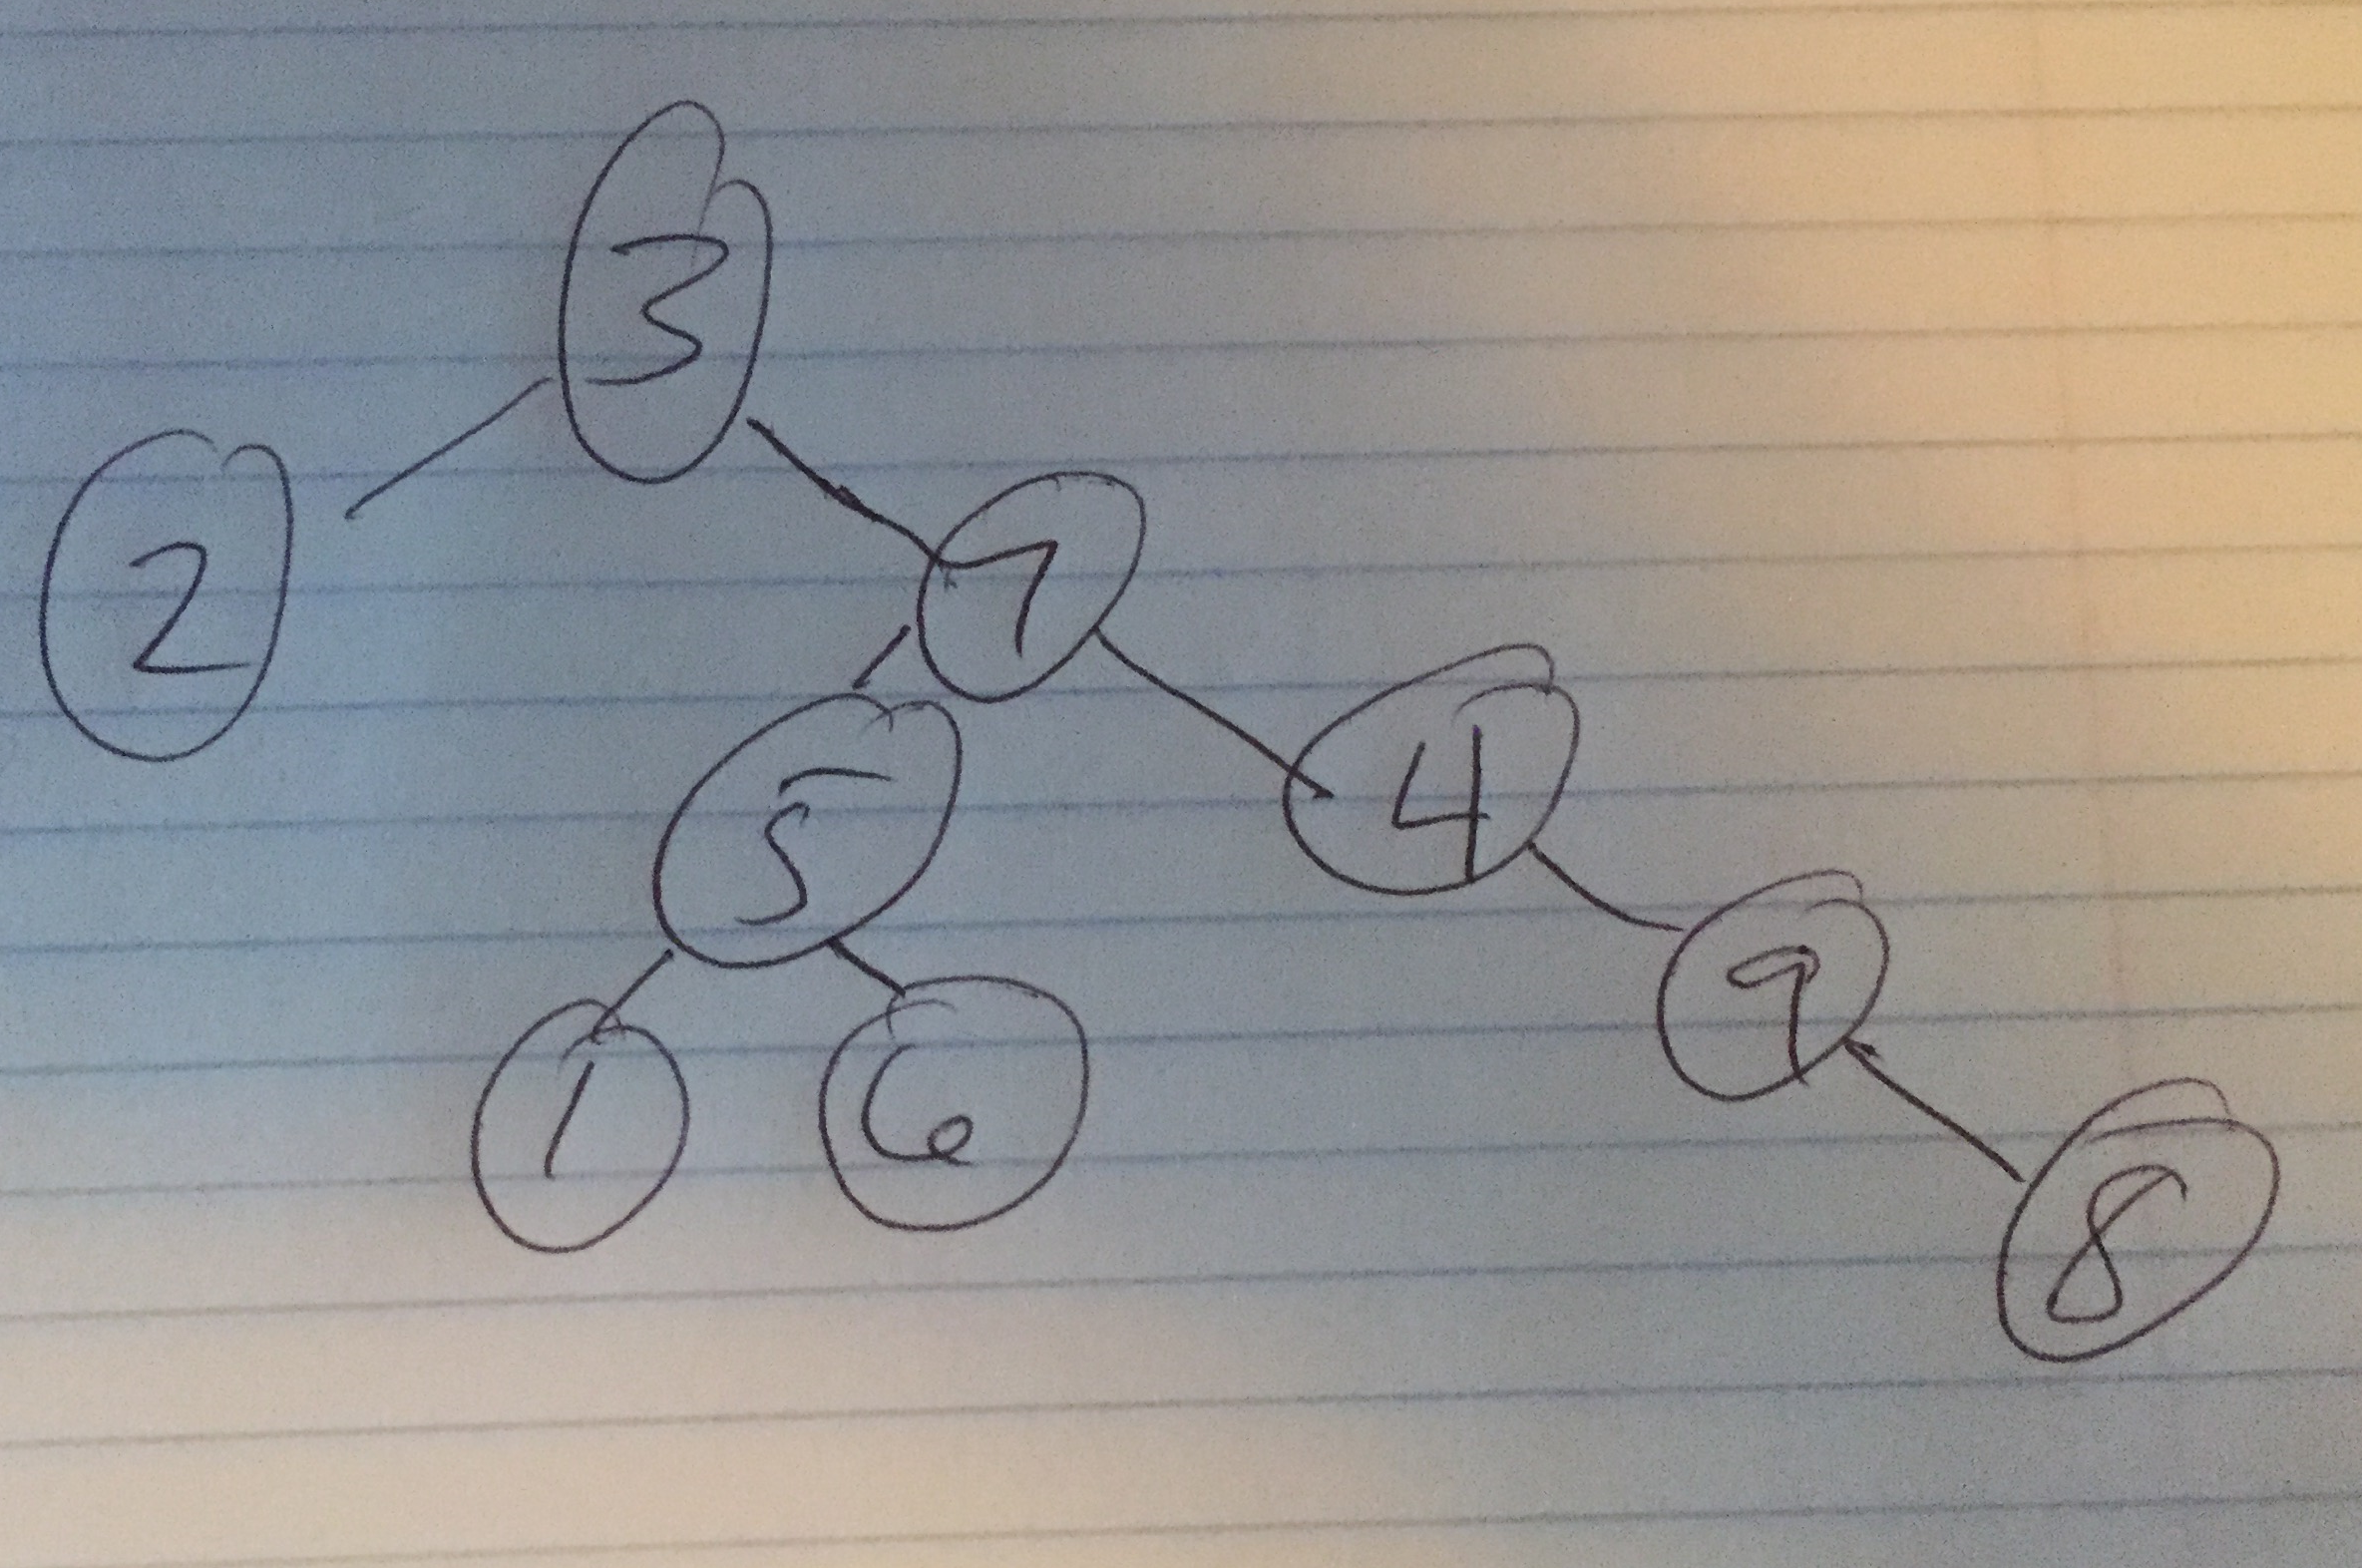 3
2
7
5
4
1
6
9
8